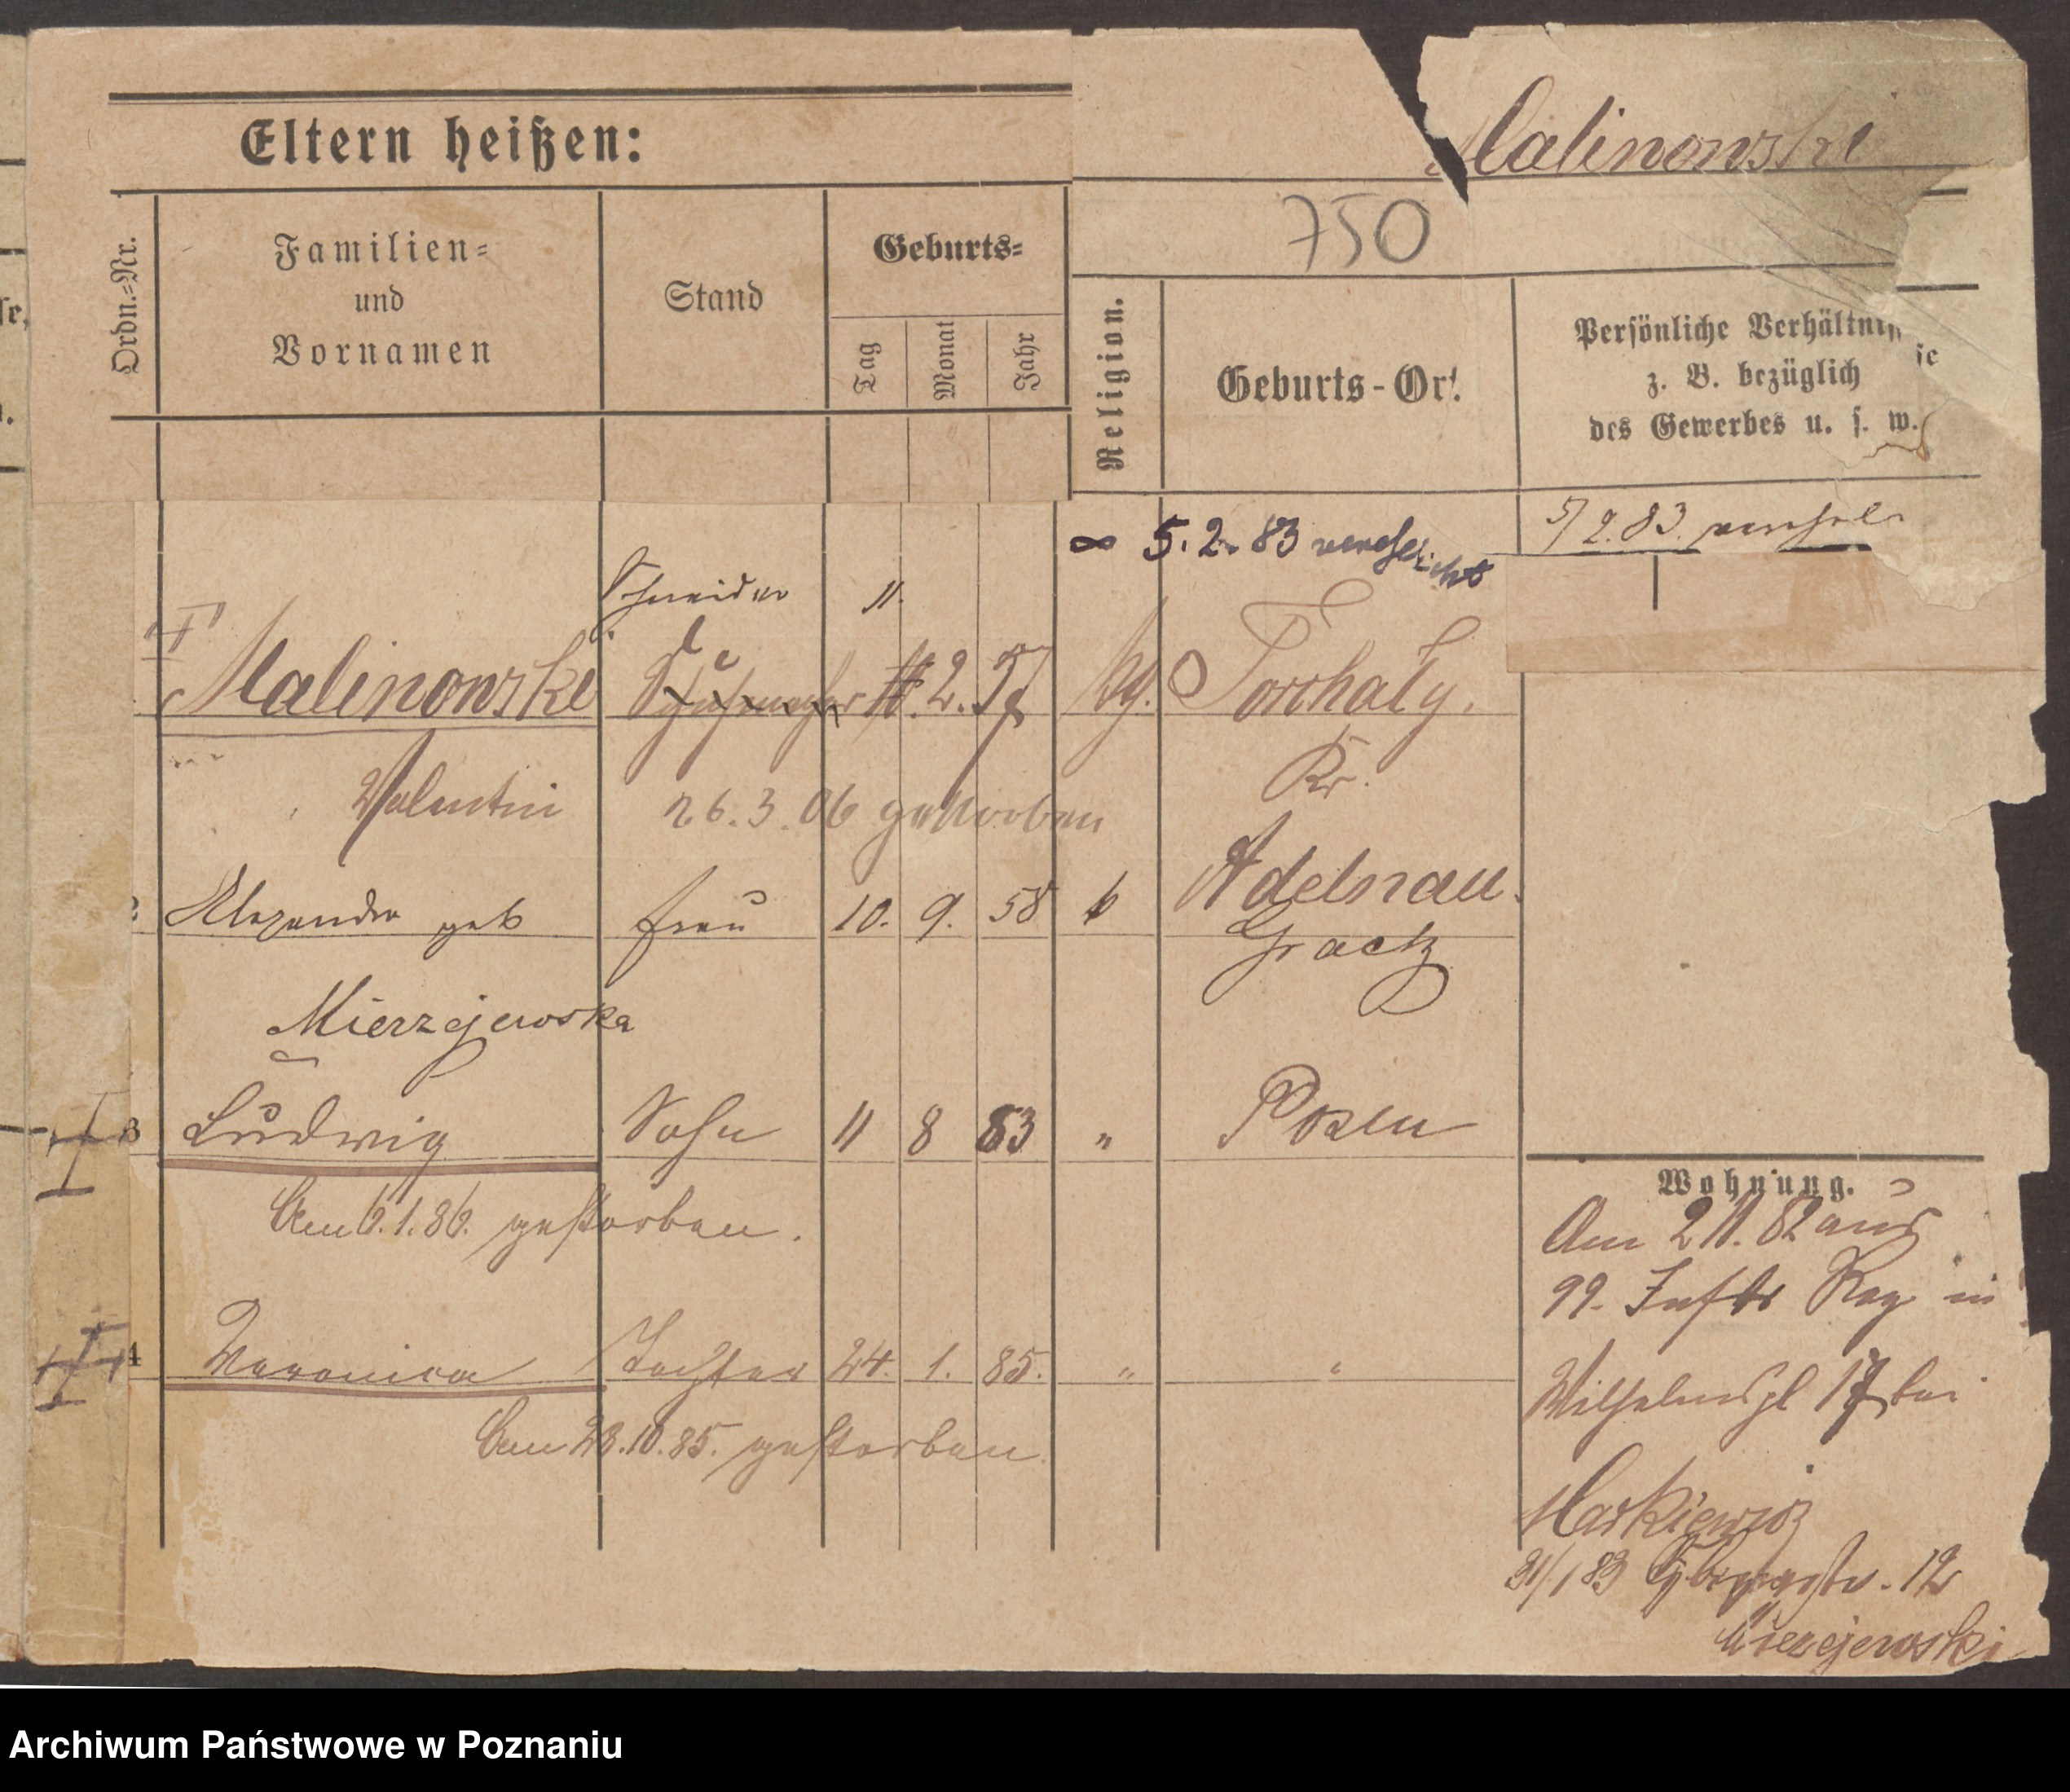 Eltern heißen:
Malinowski
750
Ordn.-Nr.
Familien-
und
Vornamen
Stand
Geburts-
Tag
Monat
Jahr
Religion.
Geburts-Ort.
Persönliche Verhältnisse
z. B. bezüglich
des Gewerbes u. s. w.
∞ 5.2.83 verehelicht
5/2.83.
Schneider 11.
Malinowski 2. 57
Valentin 26.3.06 gestorben
Kr.
Adelnau.
2 Alexandra geb Frau 10. 9. 58 Graetz
Mierzejewska
3 Ludwig Sohn 11 8 83 " Posen
Am 6.1.86. gestorben.
4 Veronica Tochter 24. 1. 85. " "
Am 28.10.85. gestorben.
Wohnung.
Am 2 11. 82 aus
99. Inftr Reg. in
Wilhelmspl 17 bei
Markiewicz
31/1 83 12
Mierzejewski
Archiwum Państwowe w Poznaniu